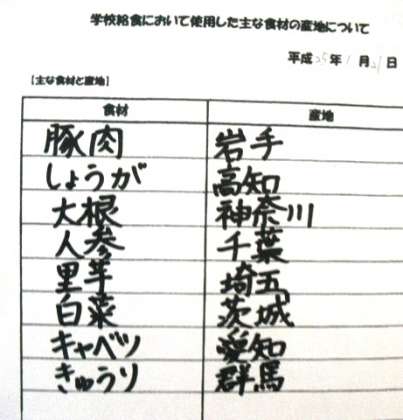 学校給食において使用した主な食材の産地について
平成25年1月21日
【主な食材と産地】
食材 産地
豚肉 岩手
しょうが 高知
大根 神奈川
人参 千葉
里芋 埼玉
白菜 茨城
キャベツ 愛知
きゅうり 群馬